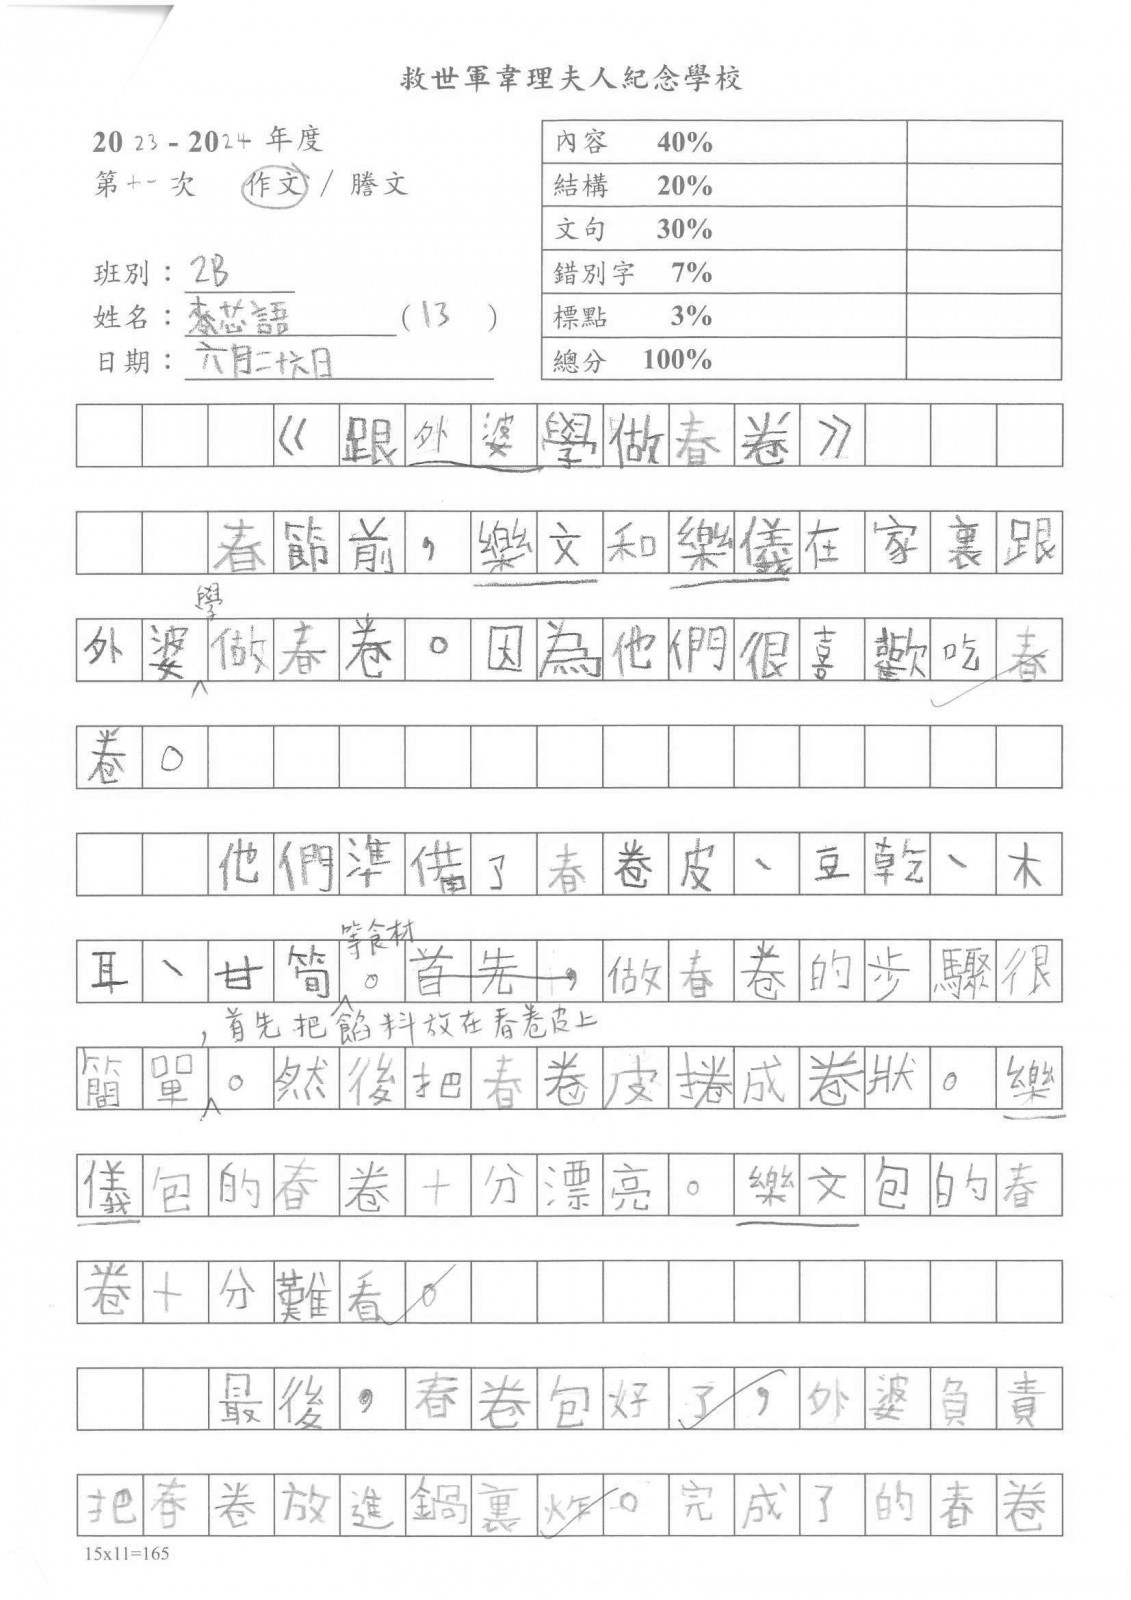 救世軍韋理夫人紀念學校
2023-2024年度
第十一次 作文/謄文
班別：2B
姓名：李芯語(13)
日期：六月二十六日
內容 40%
結構 20%
文句 30%
錯別字 7%
標點 3%
總分 100%
《跟外婆學做春卷》
春節前，樂文和樂儀在家裏跟
學
外婆做春卷。因為他們很喜歡吃春
卷。
他們準備了春卷皮、豆乾、木
等食材
耳、甘筍。首先，做春卷的步驟很
，首先把餡料放在春卷皮上
簡單。然後把春卷皮捲成卷狀。樂
儀包的春卷十分漂亮。樂文包的春
卷十分難看。
最後，春卷包好了，外婆負責
把春卷放進鍋裏炸。完成了的春卷
15x11=165